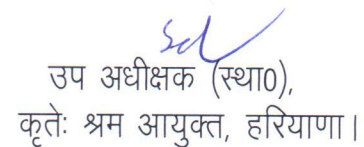 Sd/
उप अधीक्षक (स्था0),
कृतेः श्रम आयुक्त, हरियाणा।